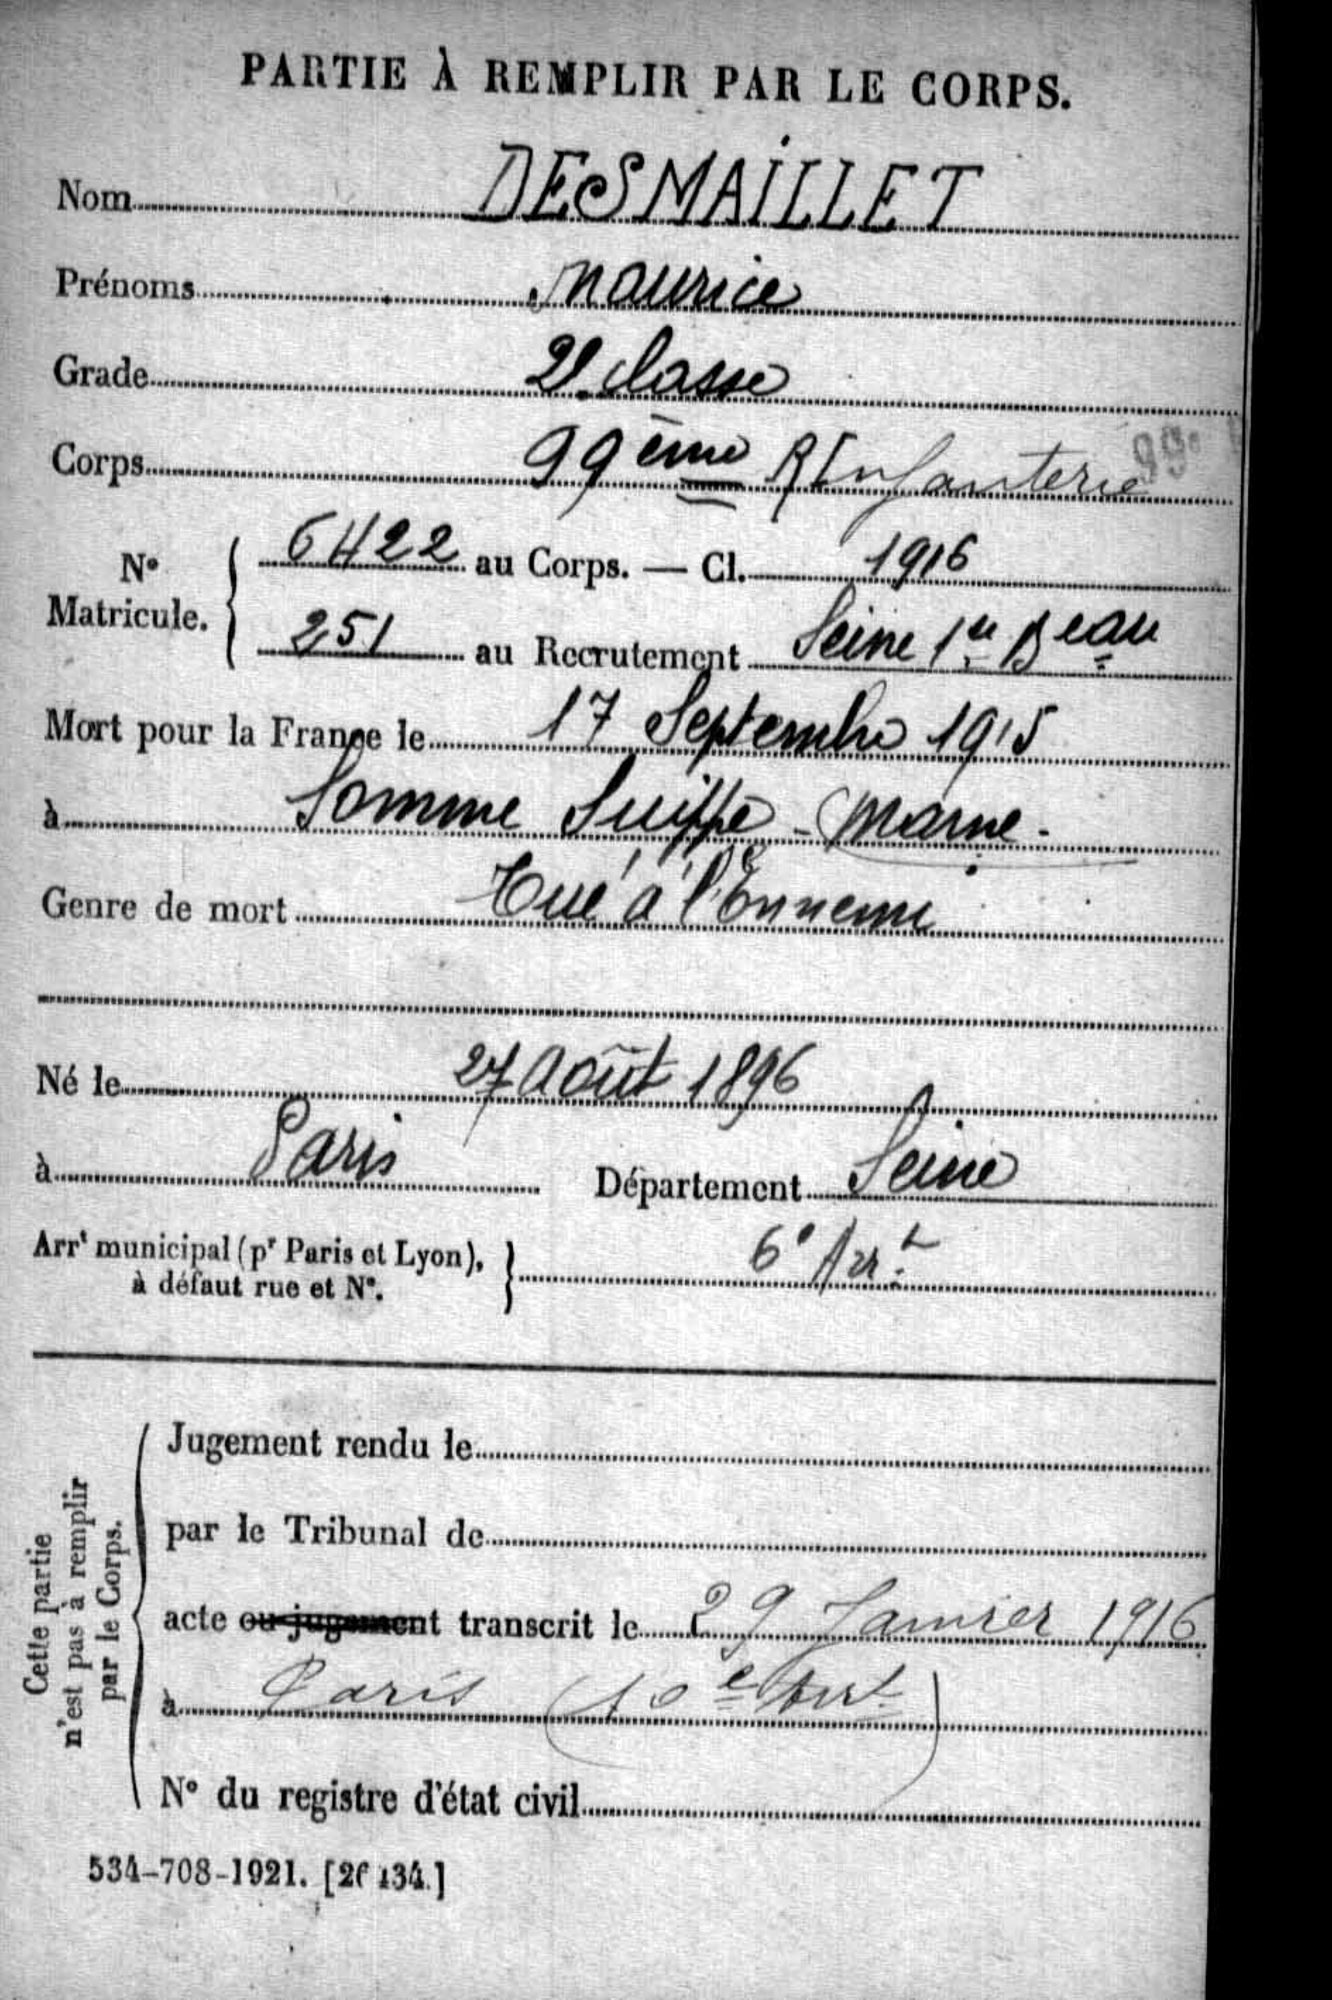 PARTIE À REMPLIR PAR LE CORPS.
Nom DESMAILLET
Prénoms Maurice
Grade 2e classe
Corps 99ème R Infanterie 99e
N° Matricule. 6422 au Corps. — Cl. 1916
251 au Recrutement Seine 1er Beau
Mort pour la France le 17 Septembre 1915
à Somme Suippe - Marne -
Genre de mort Tué à l'Ennemi
Né le 27 Août 1896
à Paris Département Seine
Arrt municipal (pr Paris et Lyon), 6e Arrt
à défaut rue et N°.
Cette partie n'est pas à remplir par le Corps.
Jugement rendu le
par le Tribunal de
acte ou jugement transcrit le 29 Janvier 1916
à Paris (10e Arrt)
N° du registre d'état civil
534-708-1921. [26434.]